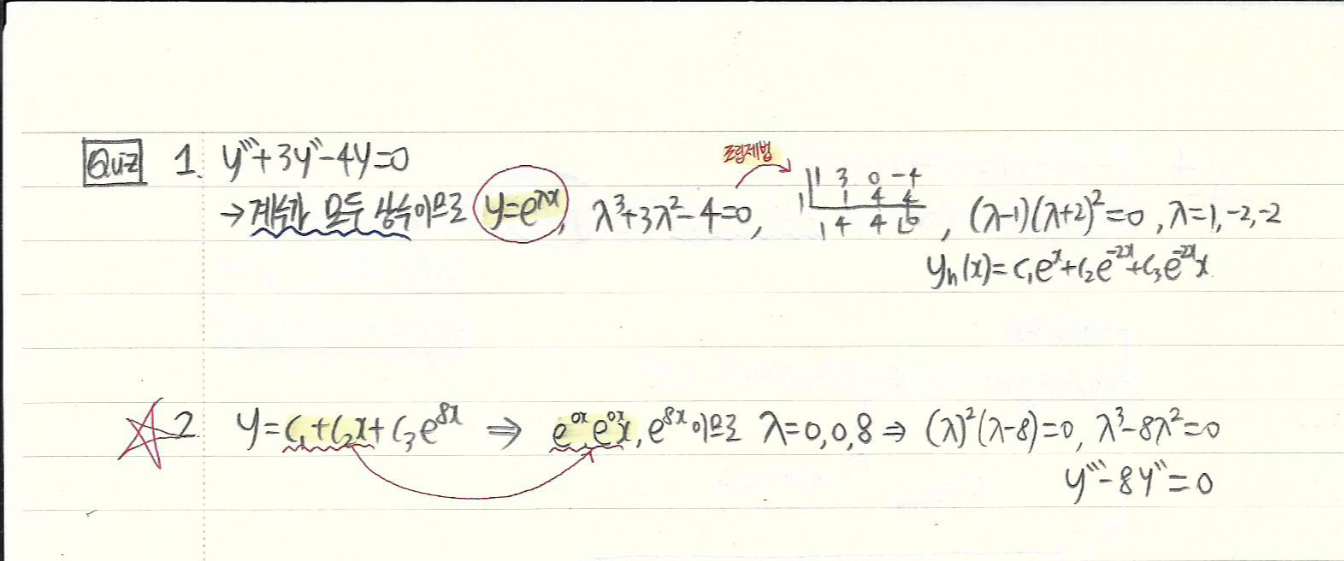 Quiz 1. y'''+3y''-4y=0
조립제법
→계수가 모두 상수이므로 y=e^λx, λ³+3λ²-4=0, (λ-1)(λ+2)²=0, λ=1,-2,-2
1 1 3 0 -4
1 4 4
1 4 4 0
yh(x)=c₁e^x+c₂e^-2x+c₃e^-2x x
☆2. y=c₁+c₂x+c₃e^8x ⇒ e^0x, e^0x x, e^8x이므로 λ=0,0,8 ⇒ (λ)²(λ-8)=0, λ³-8λ²=0
y'''-8y''=0